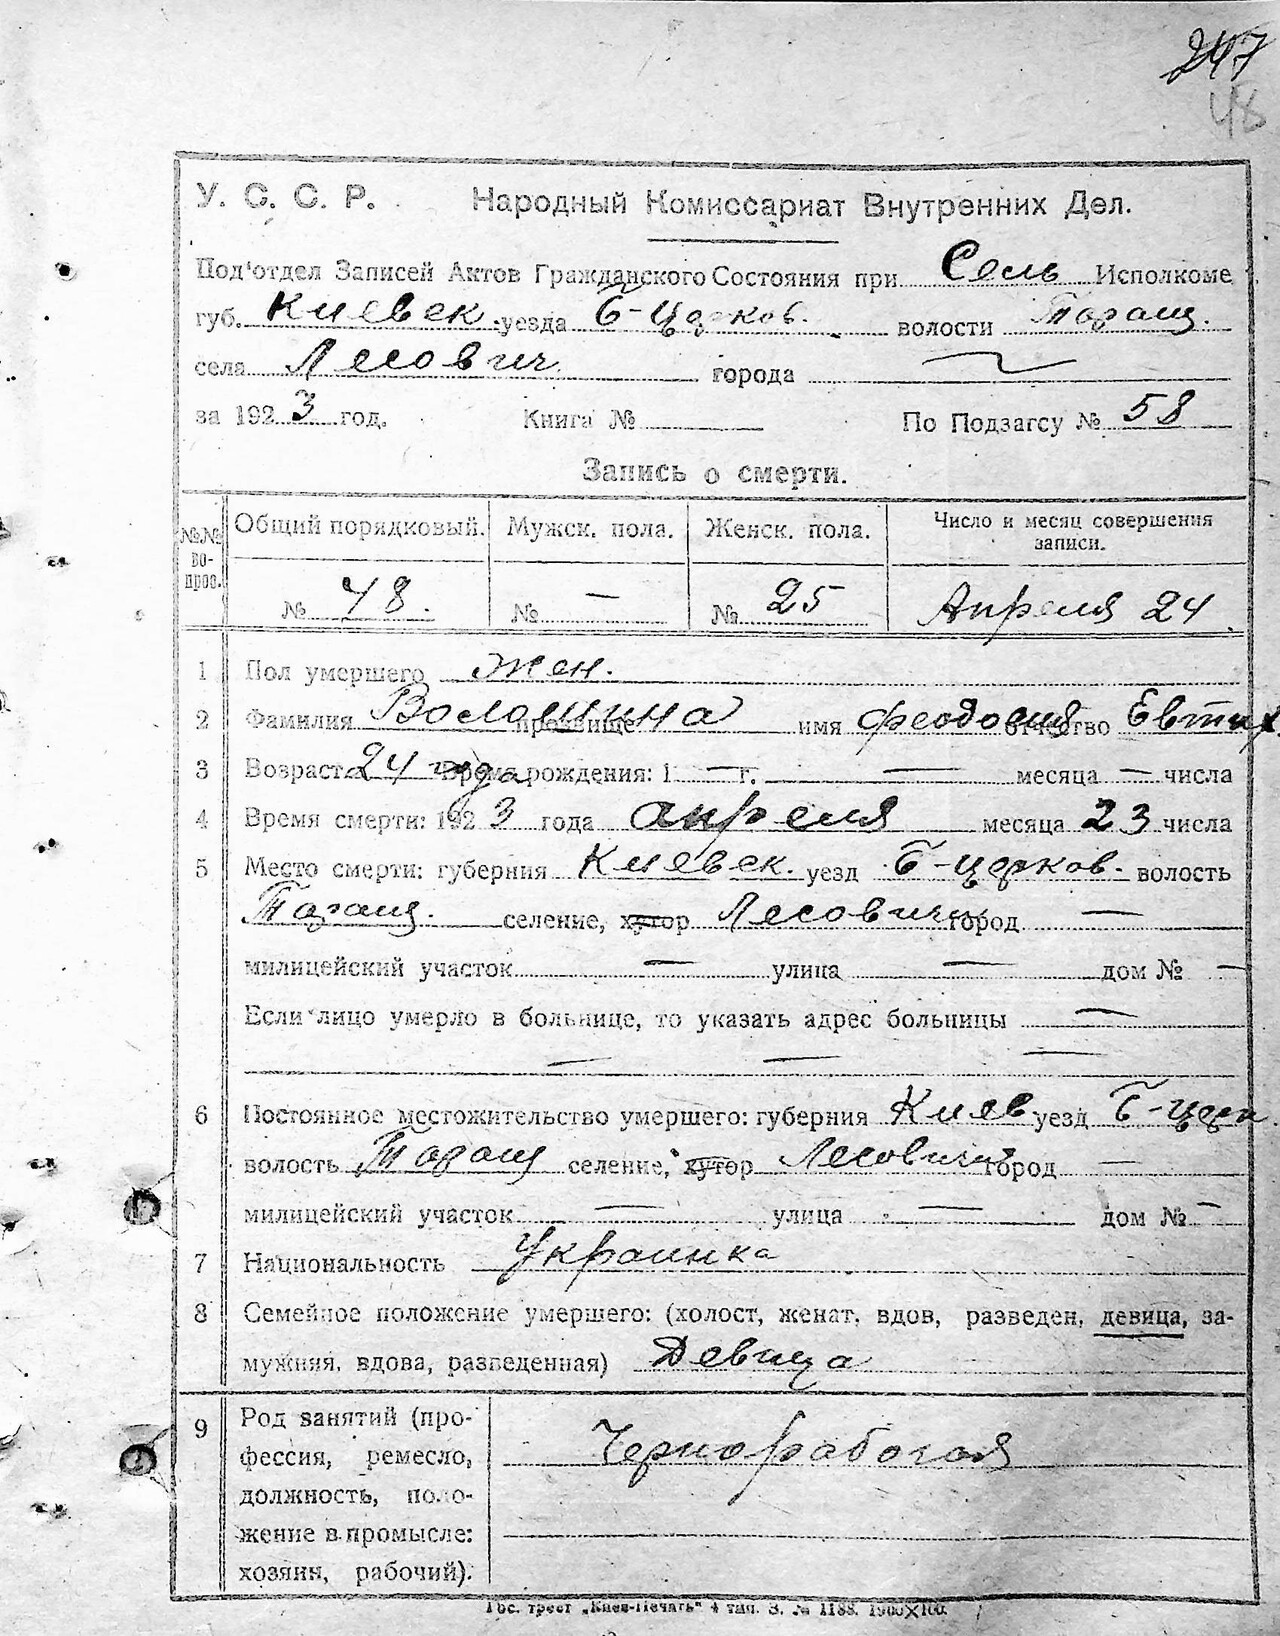 247
48
У. С. С. Р. Народный Комиссариат Внутренних Дел.
Под'отдел Записей Актов Гражданского Состояния при Сель Исполкоме
губ. Киевск. уезда Б-Церков. волости Таращ.
села Лесович. города —
за 1923 год. Книга № По Подзагсу № 58
Запись о смерти.
№№ во- прос. Общий порядковый. Мужск. пола. Женск. пола. Число и месяц совершения записи.
№ 48. № — № 25 Апреля 24.
1 Пол умершего жен.
2 Фамилия прозвище Волошина имя Феодосия отчество Евтих.
3 Возраст 24 года Время рождения: 1 — г. — месяца — числа
4 Время смерти: 1923 года апреля месяца 23 числа
5 Место смерти: губерния Киевск. уезд Б-церков. волость
Таращ. селение, хутор Лесовичи город —
милицейский участок — улица — дом № —
Если лицо умерло в больнице, то указать адрес больницы —
— — —
6 Постоянное местожительство умершего: губерния Киев уезд Б-церк.
волость Таращ селение, хутор Лесовичи город —
милицейский участок — улица — дом № —
7 Национальность Украинка
8 Семейное положение умершего: (холост, женат, вдов, разведен, девица, за-
мужняя, вдова, разведенная) Девица
9 Род занятий (про-
фессия, ремесло, Чернорабочая
должность, поло-
жение в промысле:
хозяин, рабочий).
Гос. трест „Киев-Печать" 4 тип. З. № 1188. 1900×100.